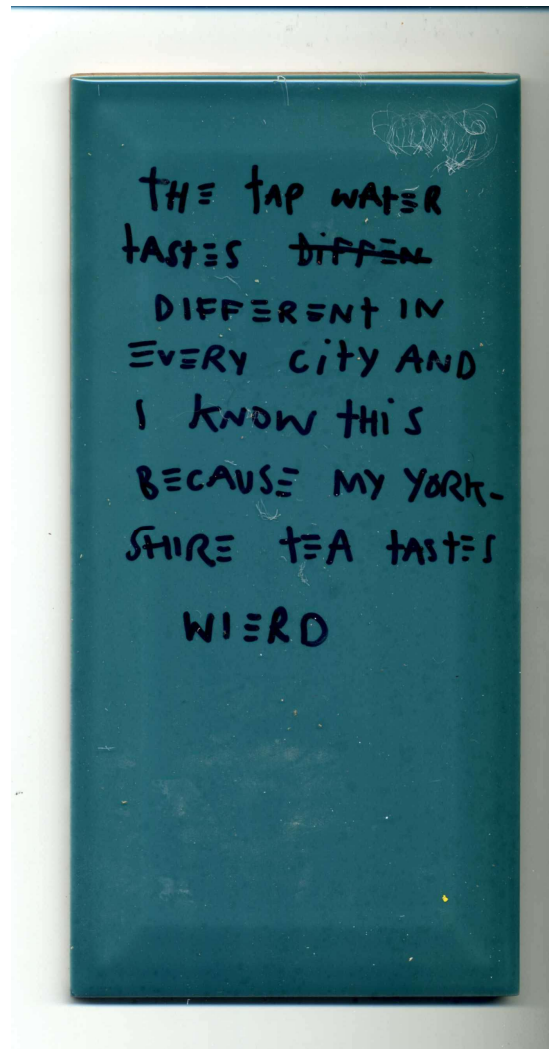 THE TAP WATER
TASTES DIFFEN
DIFFERENT IN
EVERY CITY AND
I KNOW THIS
BECAUSE MY YORK-
SHIRE TEA TASTES
WIERD